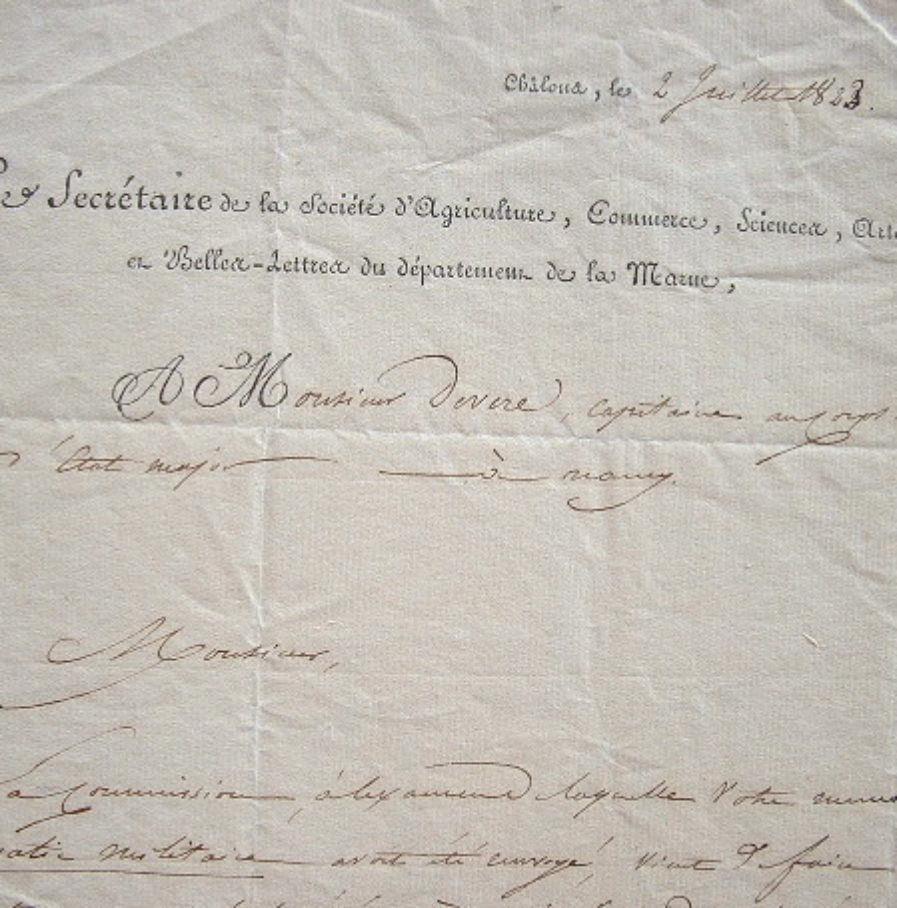 Châlons, le 2 Juillet 1823.
Le Secrétaire de la Société d'Agriculture, Commerce, Sciences, Arts
et Belles-Lettres du département de la Marne,
A Monsieur Devere, capitaine au corps
état major à nancy.
Monsieur,
La Commission, à l'examen de laquelle votre
militaire avait été envoyé, vient de faire